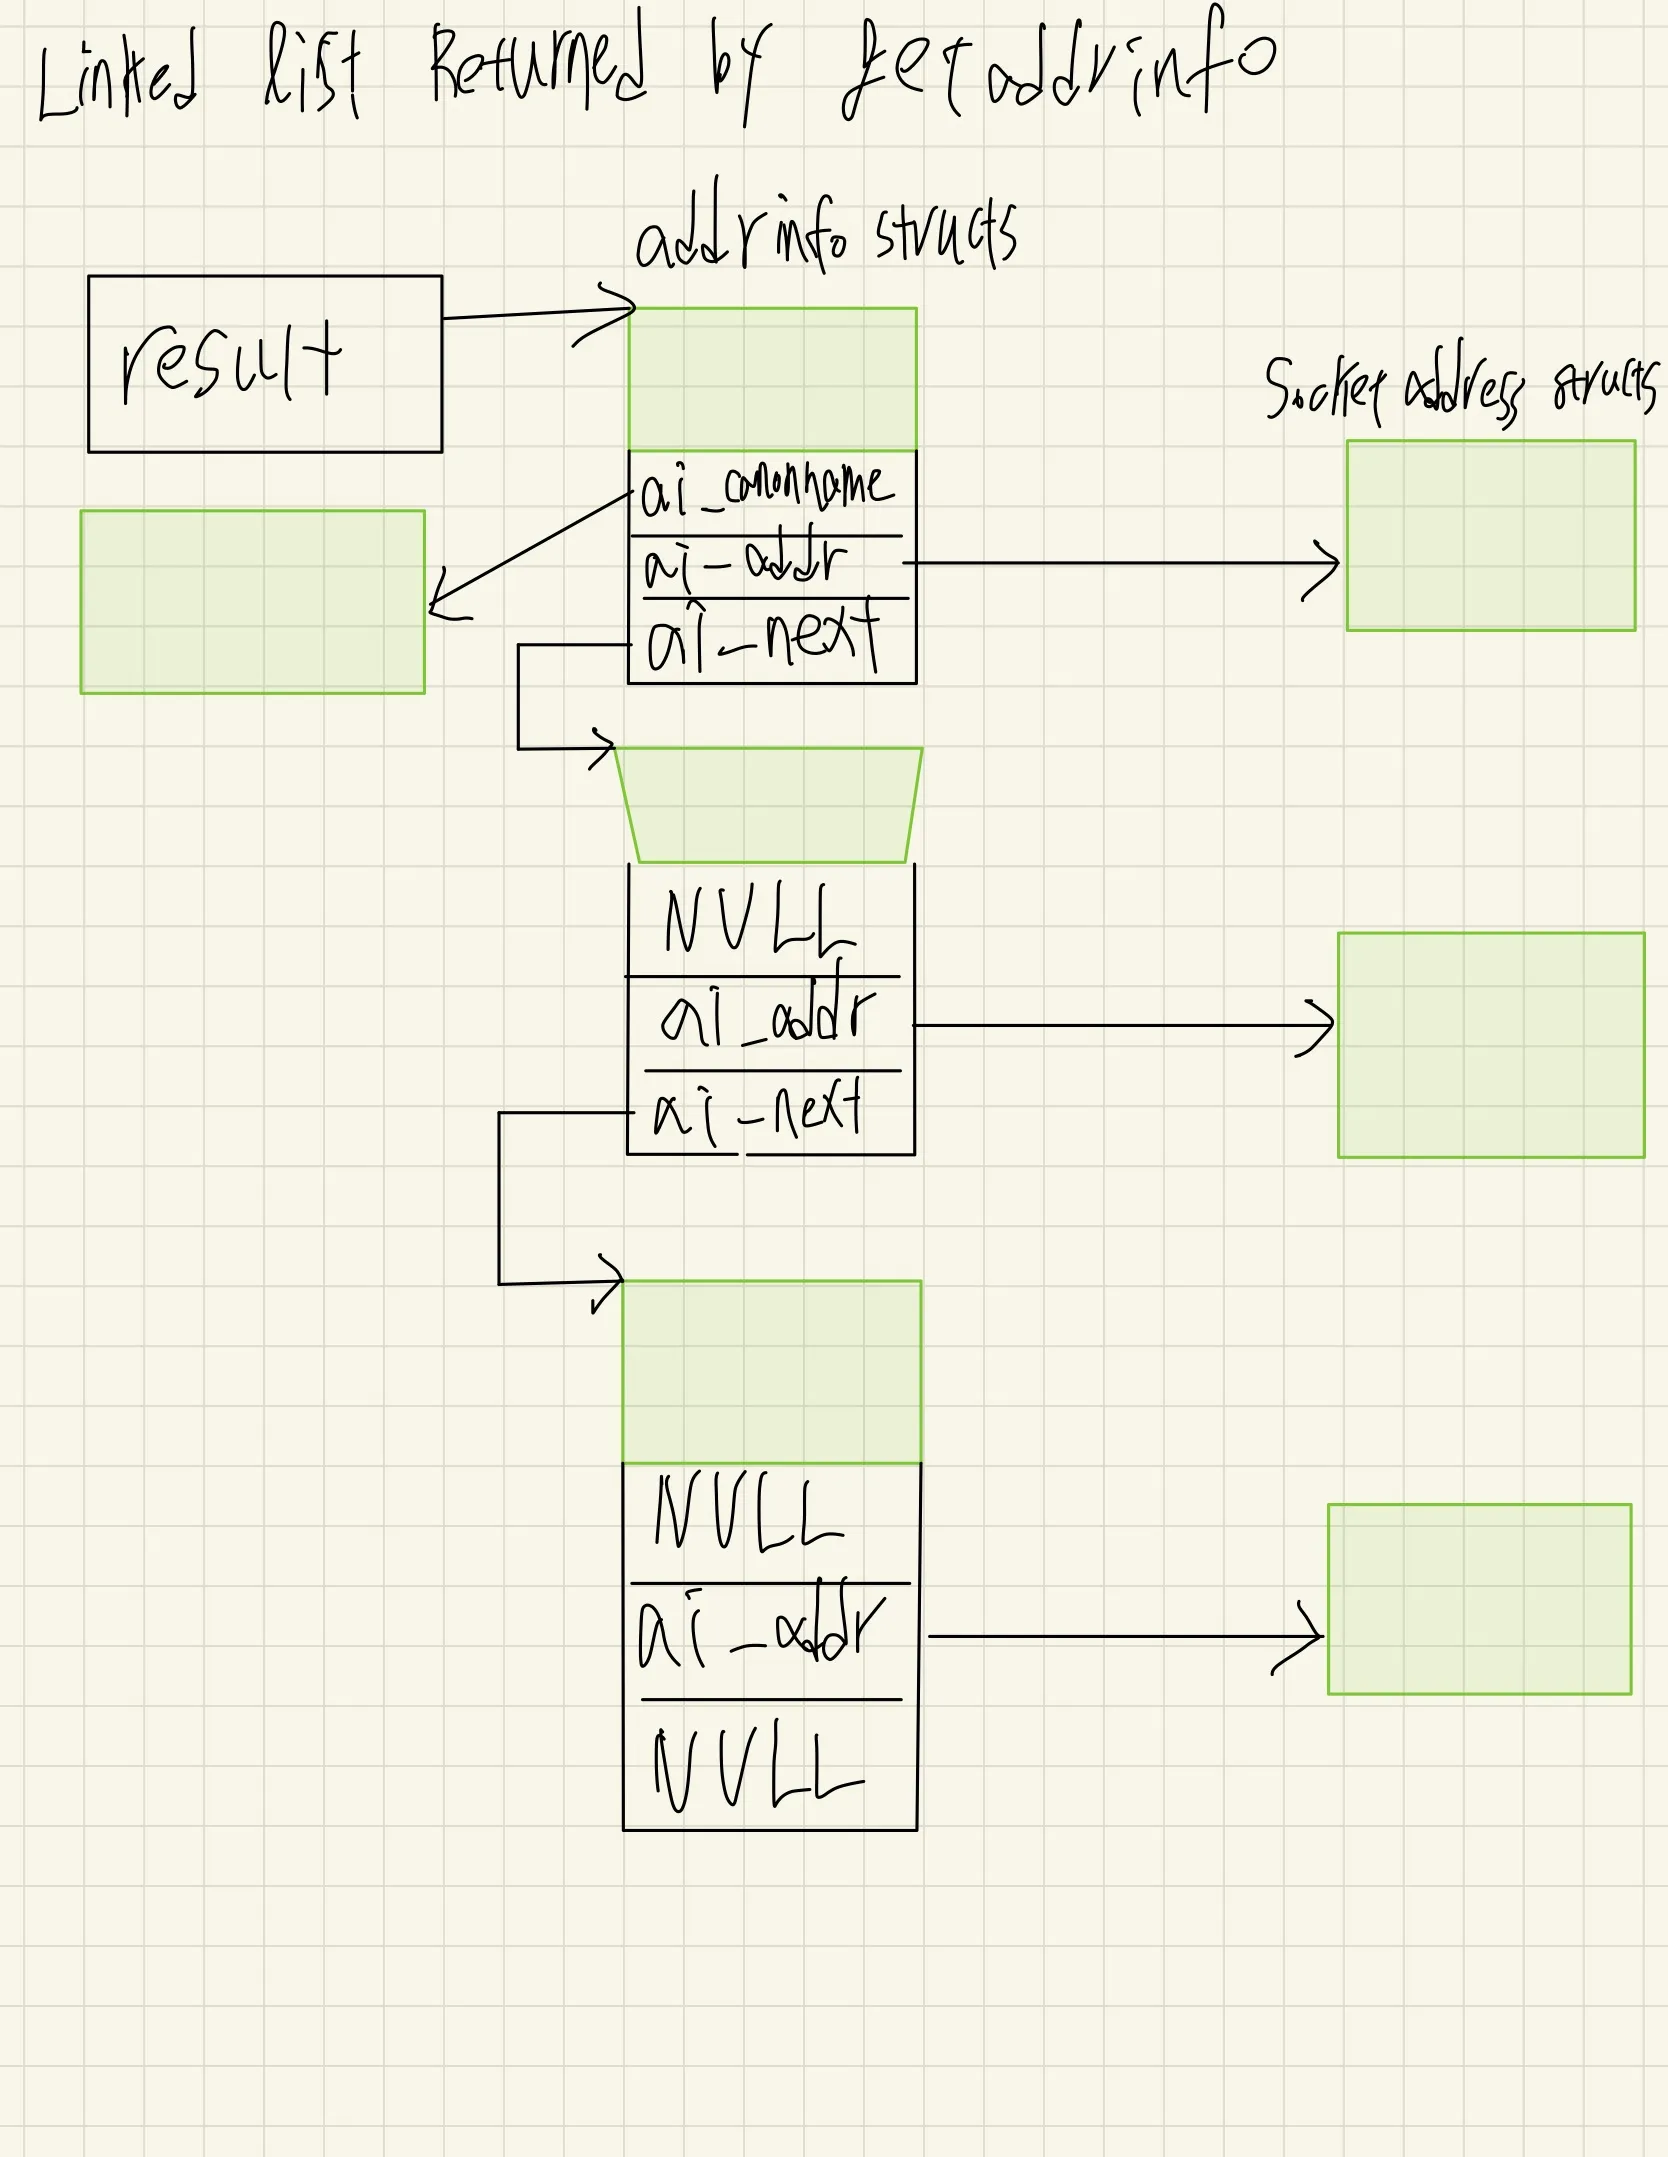 Linked list Returned by getaddrinfo
addrinfo structs
result
Socket address structs
ai_canonname
ai_addr
ai_next
NULL
ai_addr
ai_next
NULL
ai_addr
NULL